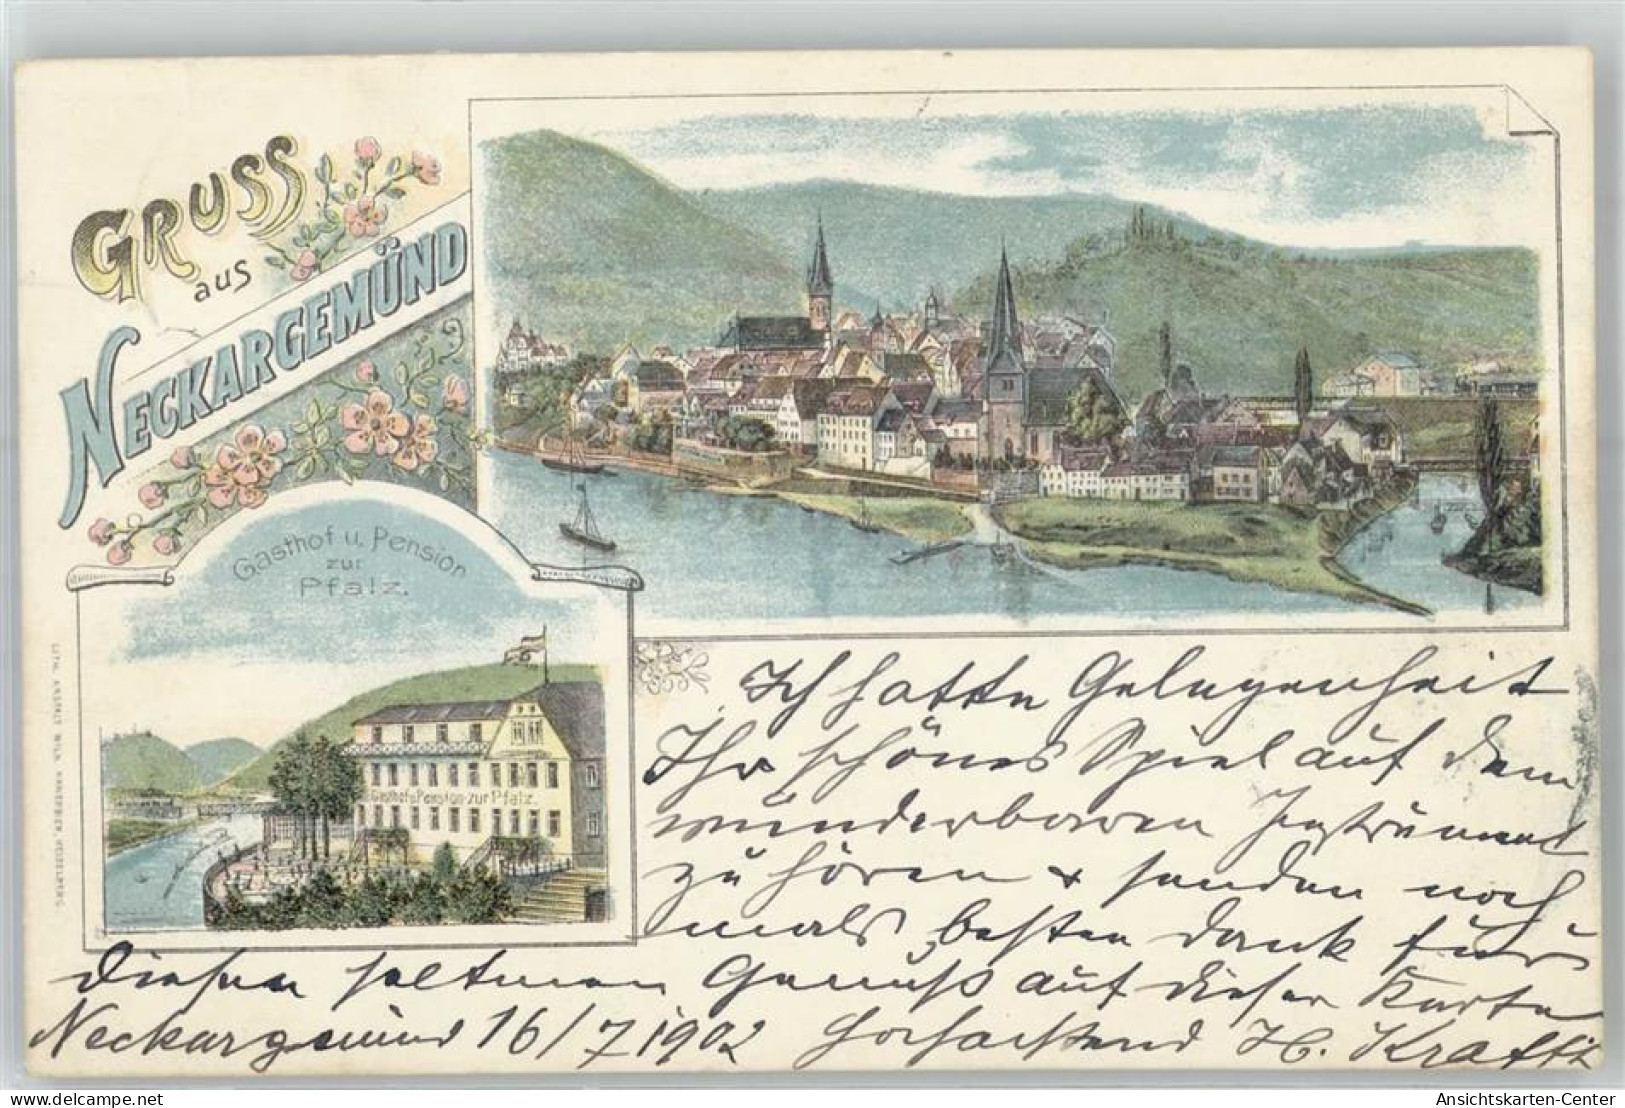 GRUSS
aus
NECKARGEMÜND
Gasthof u. Pension
zur
Pfalz.
Gasthof u. Pension zur Pfalz.
Ich hatte Gelegenheit
Ihr schönes Spiel auf dem
wunderbaren Instrument
zu hören & senden noch
mals besten Dank für
diesen seltenen Genuß auf dieser Karte
Neckargemünd 16/7 1902 Hochachtend H. Krafft
LITH. ANSTALT WILH. HEIDELBERG.
www.delcampe.net
Ansichtskarten-Center